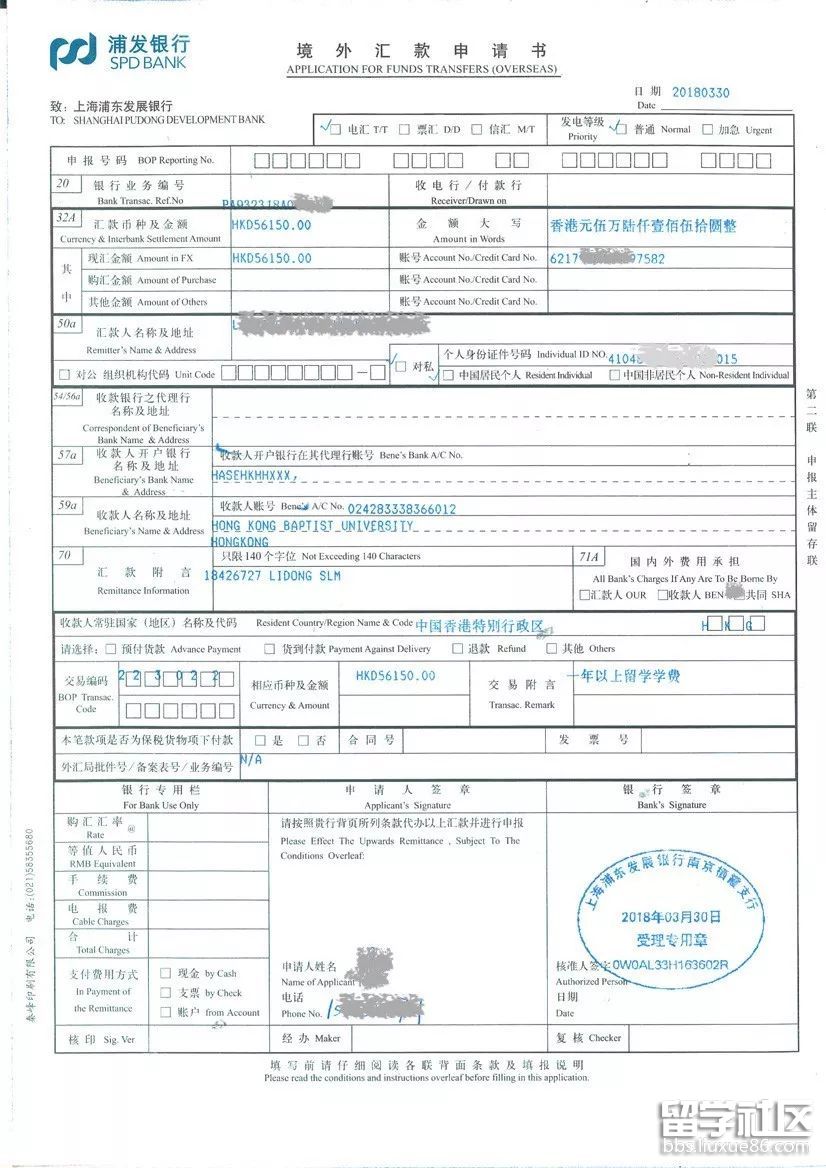 浦发银行
SPD BANK
境外汇款申请书
APPLICATION FOR FUNDS TRANSFERS (OVERSEAS)
日期 Date 20180330
致：上海浦东发展银行
TO: SHANGHAI PUDONG DEVELOPMENT BANK
电汇 T/T 票汇 D/D 信汇 M/T 发电等级 Priority 普通 Normal 加急 Urgent
申报号码 BOP Reporting No.
20 银行业务编号 Bank Transac. Ref.No PA932318A0 收电行/付款行 Receiver/Drawn on
32A 汇款币种及金额 Currency & Interbank Settlement Amount HKD56150.00 金额大写 Amount in Words 香港元伍万陆仟壹佰伍拾圆整
其中
现汇金额 Amount in FX HKD56150.00 账号 Account No./Credit Card No. 6217 97582
购汇金额 Amount of Purchase 账号 Account No./Credit Card No.
其他金额 Amount of Others 账号 Account No./Credit Card No.
50a 汇款人名称及地址 Remitter's Name & Address
个人身份证件号码 Individual ID NO. 41048 015
对公 组织机构代码 Unit Code 对私 中国居民个人 Resident Individual 中国非居民个人 Non-Resident Individual
54/56a 收款银行之代理行名称及地址 Correspondent of Beneficiary's Bank Name & Address
57a 收款人开户银行名称及地址 Beneficiary's Bank Name & Address
收款人开户银行在其代理行账号 Bene's Bank A/C No.
HASEHKHHXXX,
59a 收款人名称及地址 Beneficiary's Name & Address
收款人账号 Bene's A/C No. 024283338366012
HONG KONG BAPTIST UNIVERSITY
HONGKONG
70 汇款附言 Remittance Information
只限140个字位 Not Exceeding 140 Characters
18426727 LIDONG SLM
71A 国内外费用承担
All Bank's Charges If Any Are To Be Borne By
汇款人 OUR 收款人 BEN 共同 SHA
收款人常驻国家（地区）名称及代码 Resident Country/Region Name & Code 中国香港特别行政区 H K G
请选择： 预付货款 Advance Payment 货到付款 Payment Against Delivery 退款 Refund 其他 Others
交易编码 BOP Transac. Code 2 2 3 0 2 2 相应币种及金额 Currency & Amount HKD56150.00 交易附言 Transac. Remark 一年以上留学学费
本笔款项是否为保税货物项下付款 是 否 合同号 发票号
外汇局批件号/备案表号/业务编号 N/A
银行专用栏 For Bank Use Only
申请人签章 Applicant's Signature
银行签章 Bank's Signature
购汇汇率 @ Rate
等值人民币 RMB Equivalent
手续费 Commission
电报费 Cable Charges
合计 Total Charges
支付费用方式 In Payment of the Remittance
现金 by Cash
支票 by Check
账户 from Account
核印 Sig. Ver
请按照贵行背页所列条款代办以上汇款并进行申报
Please Effect The Upwards Remittance , Subject To The
Conditions Overleaf:
申请人姓名
Name of Applicant
电话
Phone No.
经办 Maker
2018年03月30日
受理专用章
核准人签字 0W0AL33H163602R
Authorized Person
日期
Date
复核 Checker
填写前请仔细阅读各联背面条款及填报说明
Please read the conditions and instructions overleaf before filling in this application.
第二联 申报主体留存联
泰峰印刷有限公司 电话:(021)58355680
留学社区
bbs.liuxue86.com